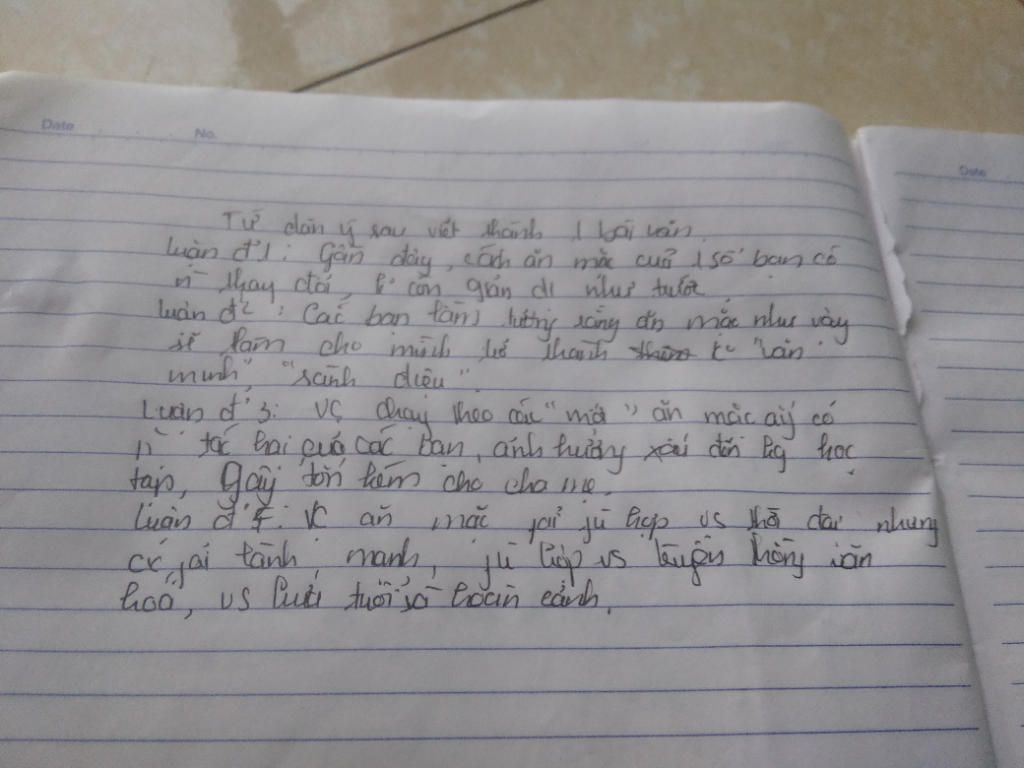 Date No.
Date
Từ dàn ý sau viết thành 1 bài văn.
Luận đ'1: Gần đây, cách ăn mặc của 1 số bạn có
thay đổi, k còn giản dị như trước
Luận đ2: Các bạn lầm tưởng rằng ăn mặc như vậy
sẽ làm cho mình trở thành "văn
minh", "sành điệu".
Luận đ'3: vc chạy theo các "mốt" ăn mặc ấy có
n` tác hại các bạn, ảnh hưởng đến học
tập, Gây tốn kém cho cha mẹ.
Luận đ'4: Vc ăn mặc phù hợp vs thời đại nhưng
lành mạnh, phù hợp vs truyền thống văn
hoá, vs lứa tuổi hoàn cảnh.